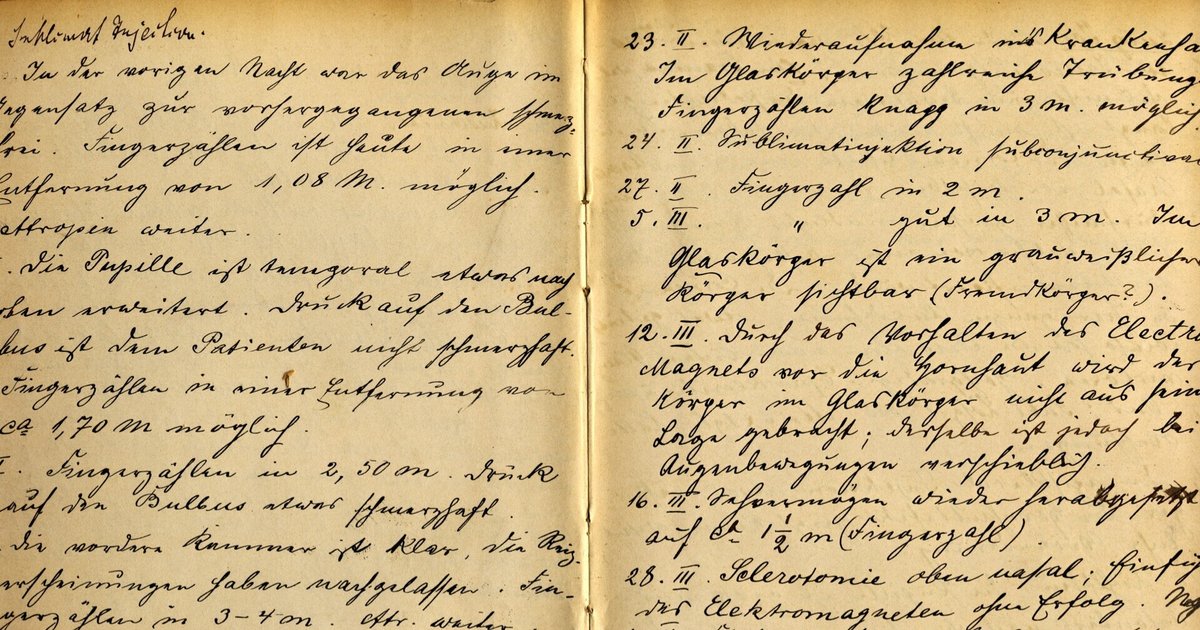 Sublimat Injection.
In der vorigen Nacht war das Auge im
Gegensatz zur vorhergegangenen schmerz-
frei. Fingerzählen ist heute in einer
Entfernung von 1,08 M. möglich.
Attropin weiter.
. Die Pupille ist temporal etwas nach
oben erweitert. Druck auf den Bul-
bus ist dem Patienten nicht schmerzhaft.
Fingerzählen in einer Entfernung von
ca 1,70 M möglich.
. Fingerzählen in 2,50 m. Druck
auf den Bulbus etwas schmerzhaft.
Die vordere Kammer ist klar, die Reiz-
erscheinungen haben nachgelassen. Fin-
gerzählen in 3-4 m. Attr. weiter
23. II. Wiederaufnahme ins Krankenha
Im Glaskörper zahlreiche Trübung
Fingerzählen knapp in 3 m. möglich
24. II. Sublimatinjektion subconjunctival
27. II Fingerzahl in 2 m.
5. III. " gut in 3 m. Im
Glaskörper ist ein grauweißlicher
Körper sichtbar (Fremdkörper?).
12. III. Durch das Vorhalten des Electro
Magnets vor die Hornhaut wird der
Körper im Glaskörper nicht aus sein
Lage gebracht; derselbe ist jedoch bei
Augenbewegungen verschieblich.
16. III. Sehvermögen wieder herabgesetzt
auf ca 1 1/2 m (Fingerzahl).
28. III. Sclerotomie oben nasal; Einfüh
des Elektromagneten ohne Erfolg.